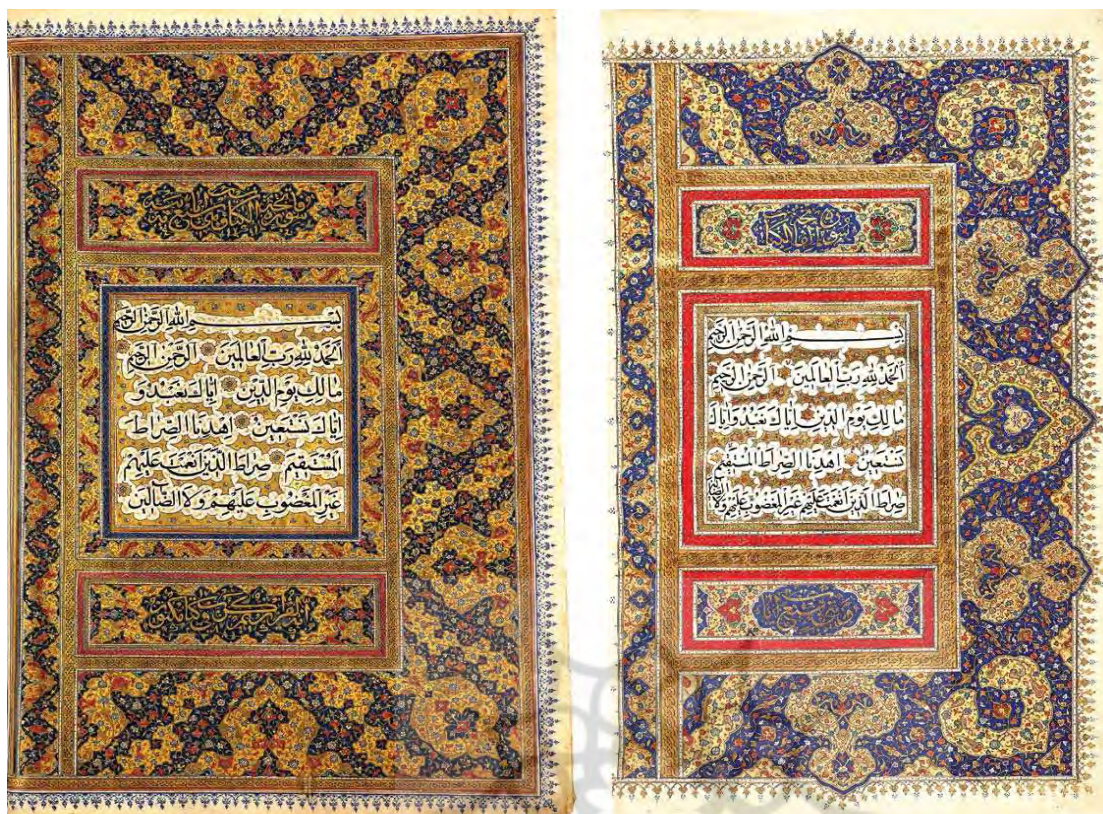 سورة فاتحة الكتاب
بسم الله الرحمن الرحيم
الحمد لله رب العالمين الرحمن الرحيم
مالك يوم الدين اياك نعبد واياك
نستعين اهدنا الصراط المستقيم
صراط الذين انعمت عليهم غير المغضوب عليهم ولا الضالين
سورة فاتحة الكتاب
بسم الله الرحمن الرحيم
الحمد لله رب العالمين الرحمن الرحيم
مالك يوم الدين اياك نعبد و
اياك نستعين اهدنا الصراط
المستقيم صراط الذين انعمت عليهم
غير المغضوب عليهم ولا الضالين
انه لقرآن كريم في كتاب مكنون